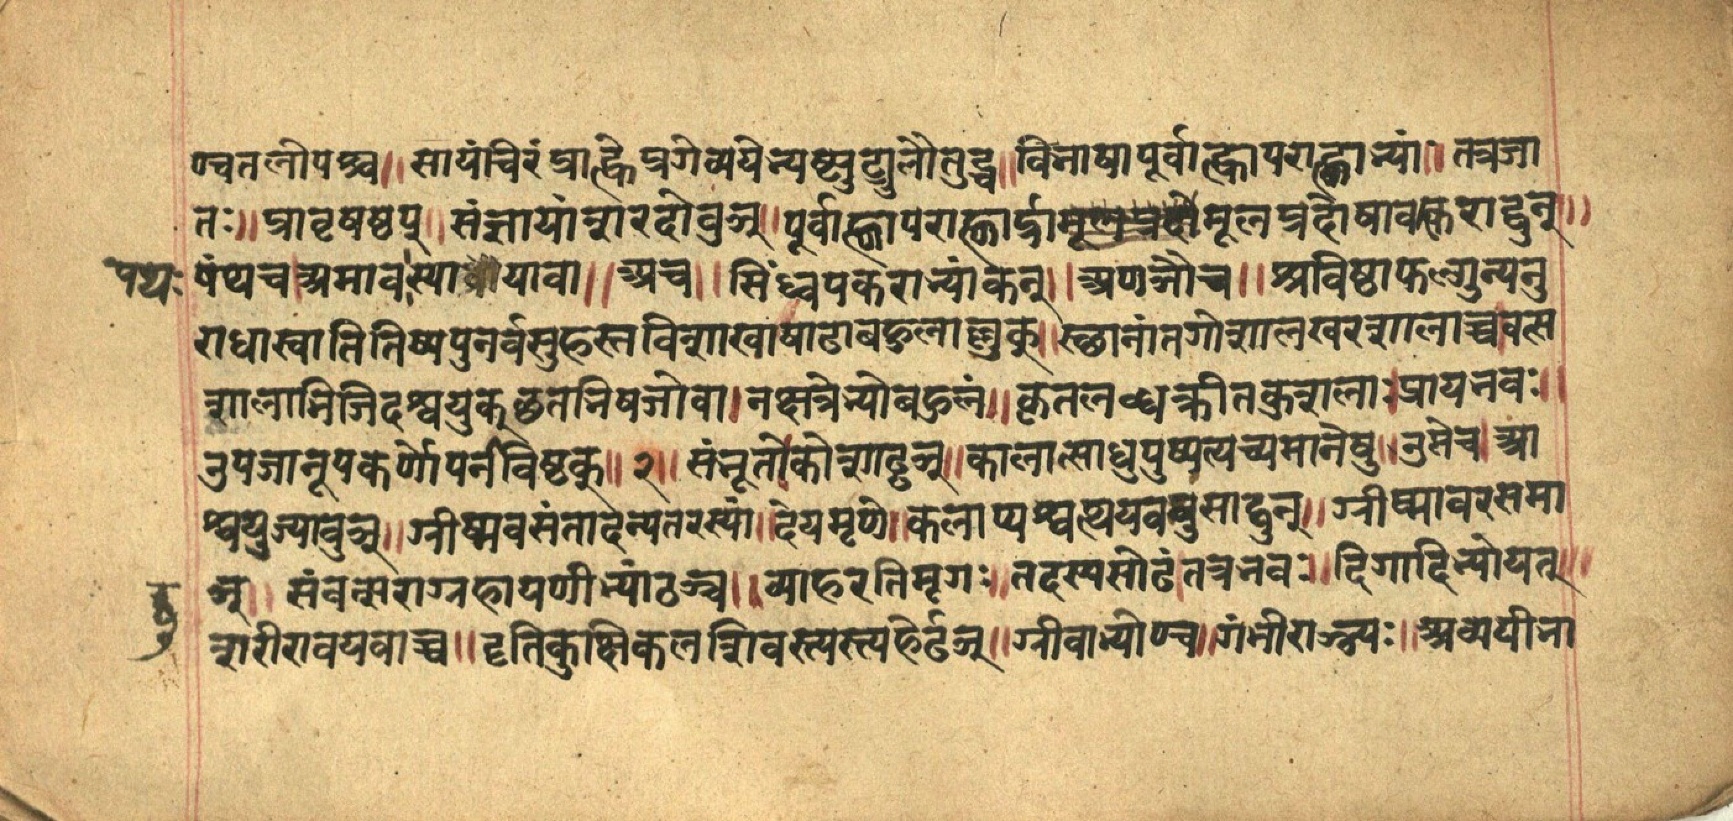 ण्च तलोपश्च॥ सायंचिरंप्राह्णेप्रगेव्ययेभ्यष्ट्युट्युलौतुट्च॥ विभाषापूर्वाह्णापराह्णाभ्यां॥ तत्रजा
तः॥ प्रावृषष्ठप्॥ संज्ञायांशरदोवुञ्॥ पूर्वाह्णापराह्णार्द्रामूलप्रदोमूलप्रदोषावस्कराद्वुन्॥
पथः पंथच अमावास्यायावा॥ अच॥ सिंध्वपकराभ्यांकन्॥ अणञौच॥ श्रविष्ठाफल्गुन्यनु
राधास्वातितिष्यपुनर्वसुहस्तविशाखाषाढाबहुलाल्लुक्॥ स्छानांतगोशालखरशालाच्च वत्स
शालाभिजिदश्वयुक्छतभिषजोवा। नक्षत्रेभ्योबहुलं॥ कृतलब्धक्रीतकुशलाः प्रायभवः॥
उपजानूपकर्णोपनीविष्ठक्॥ २॥ संभूते कोशाड्ढञ्॥ कालात्साधुपुष्प्यत्पच्यमानेषु॥ उप्तेच आ
श्वयुज्यावुञ्॥ ग्रीष्मवसंतादन्यतरस्यां॥ देयमृणे॥ कलाप्यश्वत्थयवबुसाद्वुन्॥ ग्रीष्मावरसमा
द्वु ञ्॥ संवत्सराग्रहायणीभ्यांठञ्च॥ व्याहरतिमृगः॥ तदस्यसोढं तत्रभवः॥ दिगादिभ्योयत्॥
शरीरावयवाच्च॥ दृतिकुक्षिकलशिवस्त्यस्त्यहेर्ढञ्॥ ग्रीवाभ्योण्च॥ गंभीराञ्यः॥ अव्ययीभा